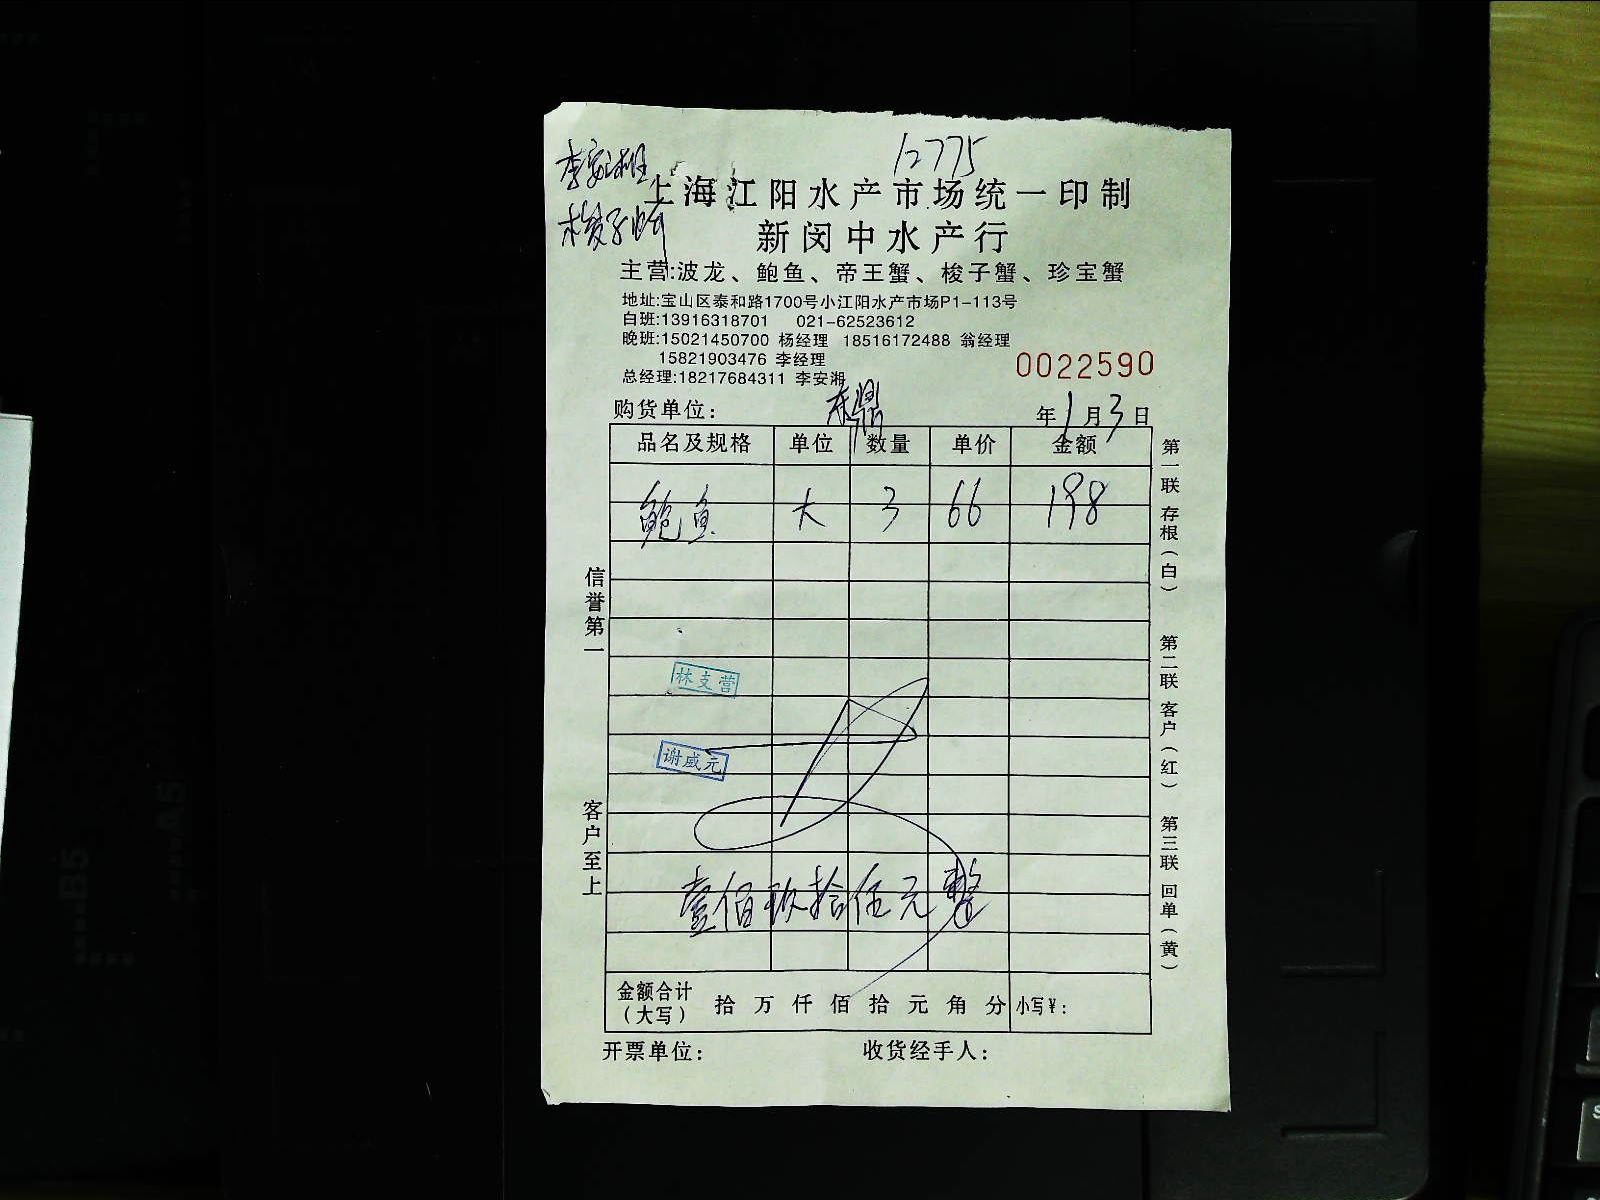 李安湘
12775
梭子蟹
上海江阳水产市场统一印制
新闵中水产行
主营:波龙、鲍鱼、帝王蟹、梭子蟹、珍宝蟹
地址:宝山区泰和路1700号小江阳水产市场P1-113号
白班:13916318701 021-62523612
晚班:15021450700 杨经理 18516172488 翁经理
15821903476 李经理
0022590
总经理:18217684311 李安湘
购货单位: 东鼎 年1月3日
品名及规格 单位 数量 单价 金额
鲍鱼 大 3 66 198
林支营
谢威元
壹佰玖拾伍元整
金额合计(大写) 拾 万 仟 佰 拾 元 角 分 小写¥:
开票单位: 收货经手人:
信誉第一
客户至上
第一联 存根(白)
第二联 客户(红)
第三联 回单(黄)